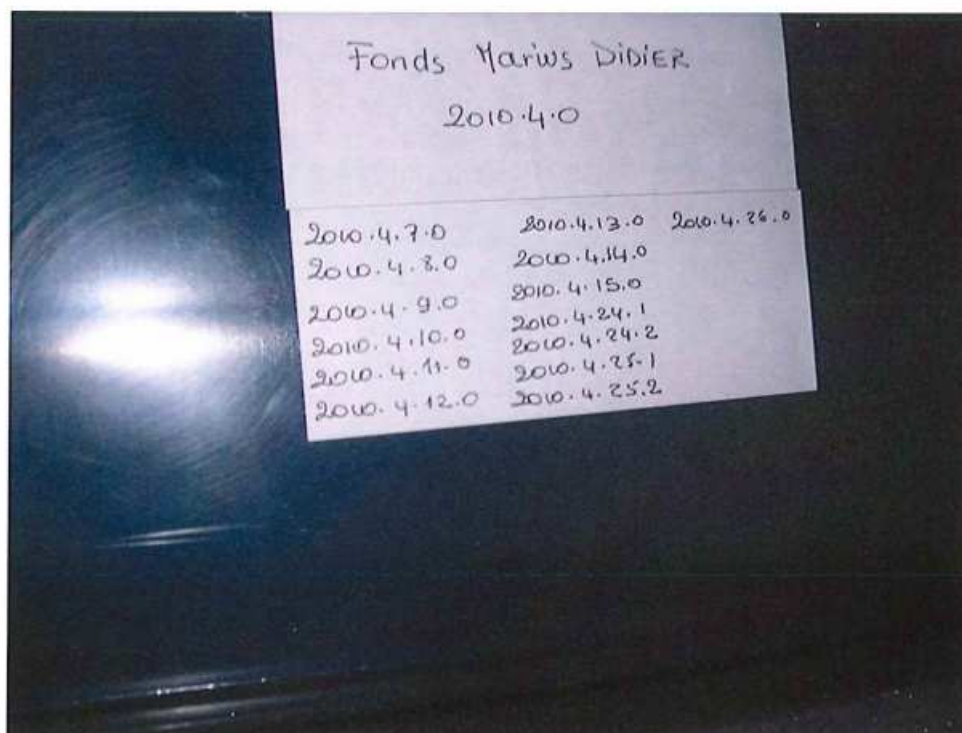 Fonds Marius DIDIER
2010.4.0
2010.4.7.0
2010.4.8.0
2010.4.9.0
2010.4.10.0
2010.4.11.0
2010.4.12.0
2010.4.13.0
2010.4.14.0
2010.4.15.0
2010.4.24.1
2010.4.24.2
2010.4.25.1
2010.4.25.2
2010.4.26.0